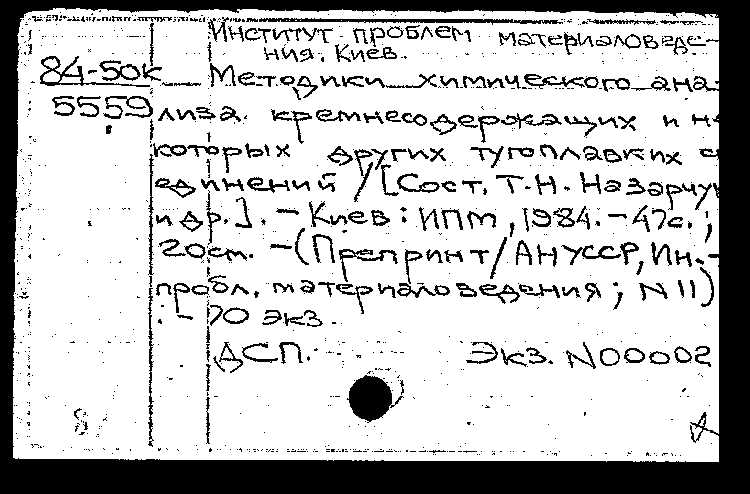 Институт проблем материаловеде-
ния. Киев.
84-50к Методики химического ана-
5559 лиза кремнесодержащих и не
которых других тугоплавких с
единений / [Сост. Т.Н. Назарчук
и др.]. – Киев : ИПМ, 1984. – 47с. ;
20см. – (Препринт / АН УССР, Ин.-
пробл. материаловедения ; N 11)
: – 70 экз.
ДСП. Экз. N00002
8